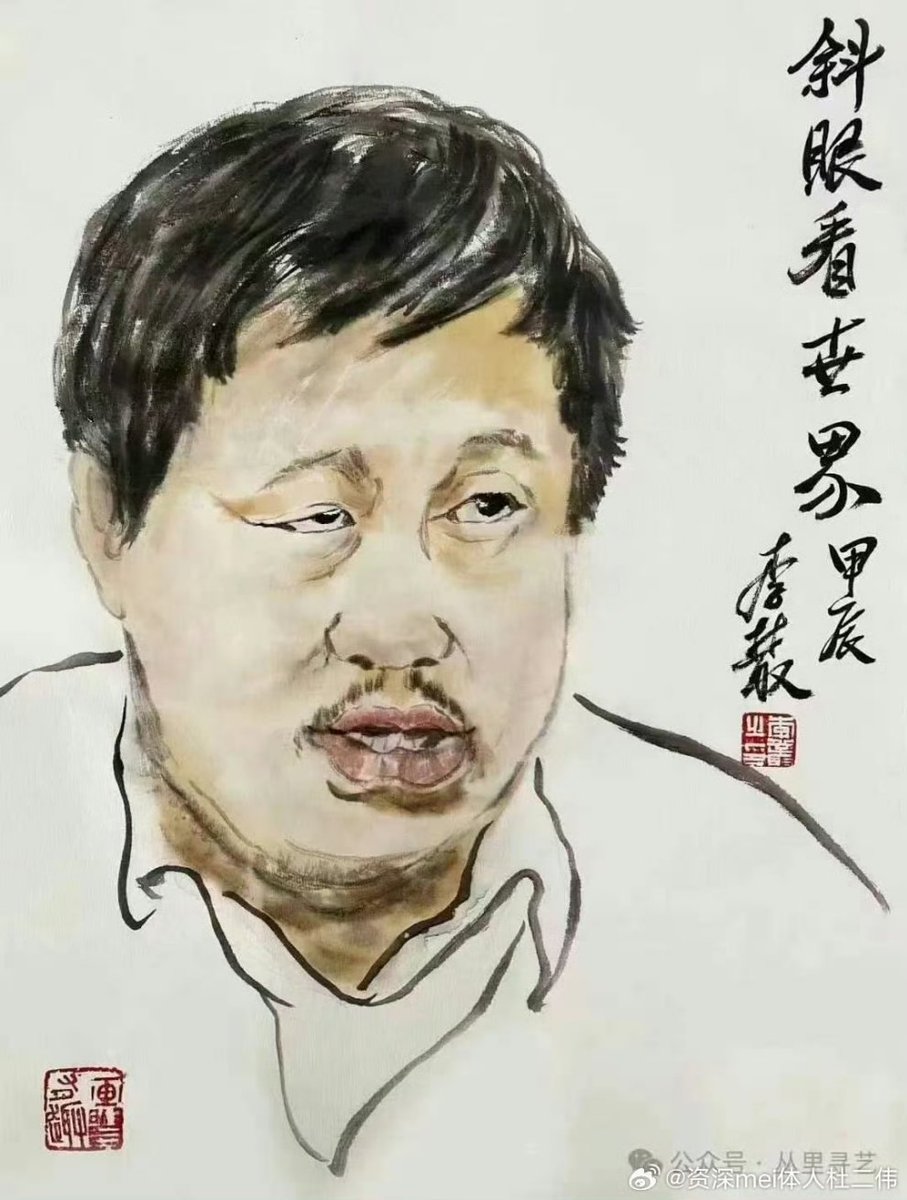 斜眼看世界
甲辰
李丛
公众号·丛里寻艺
@资深mei体人杜二伟